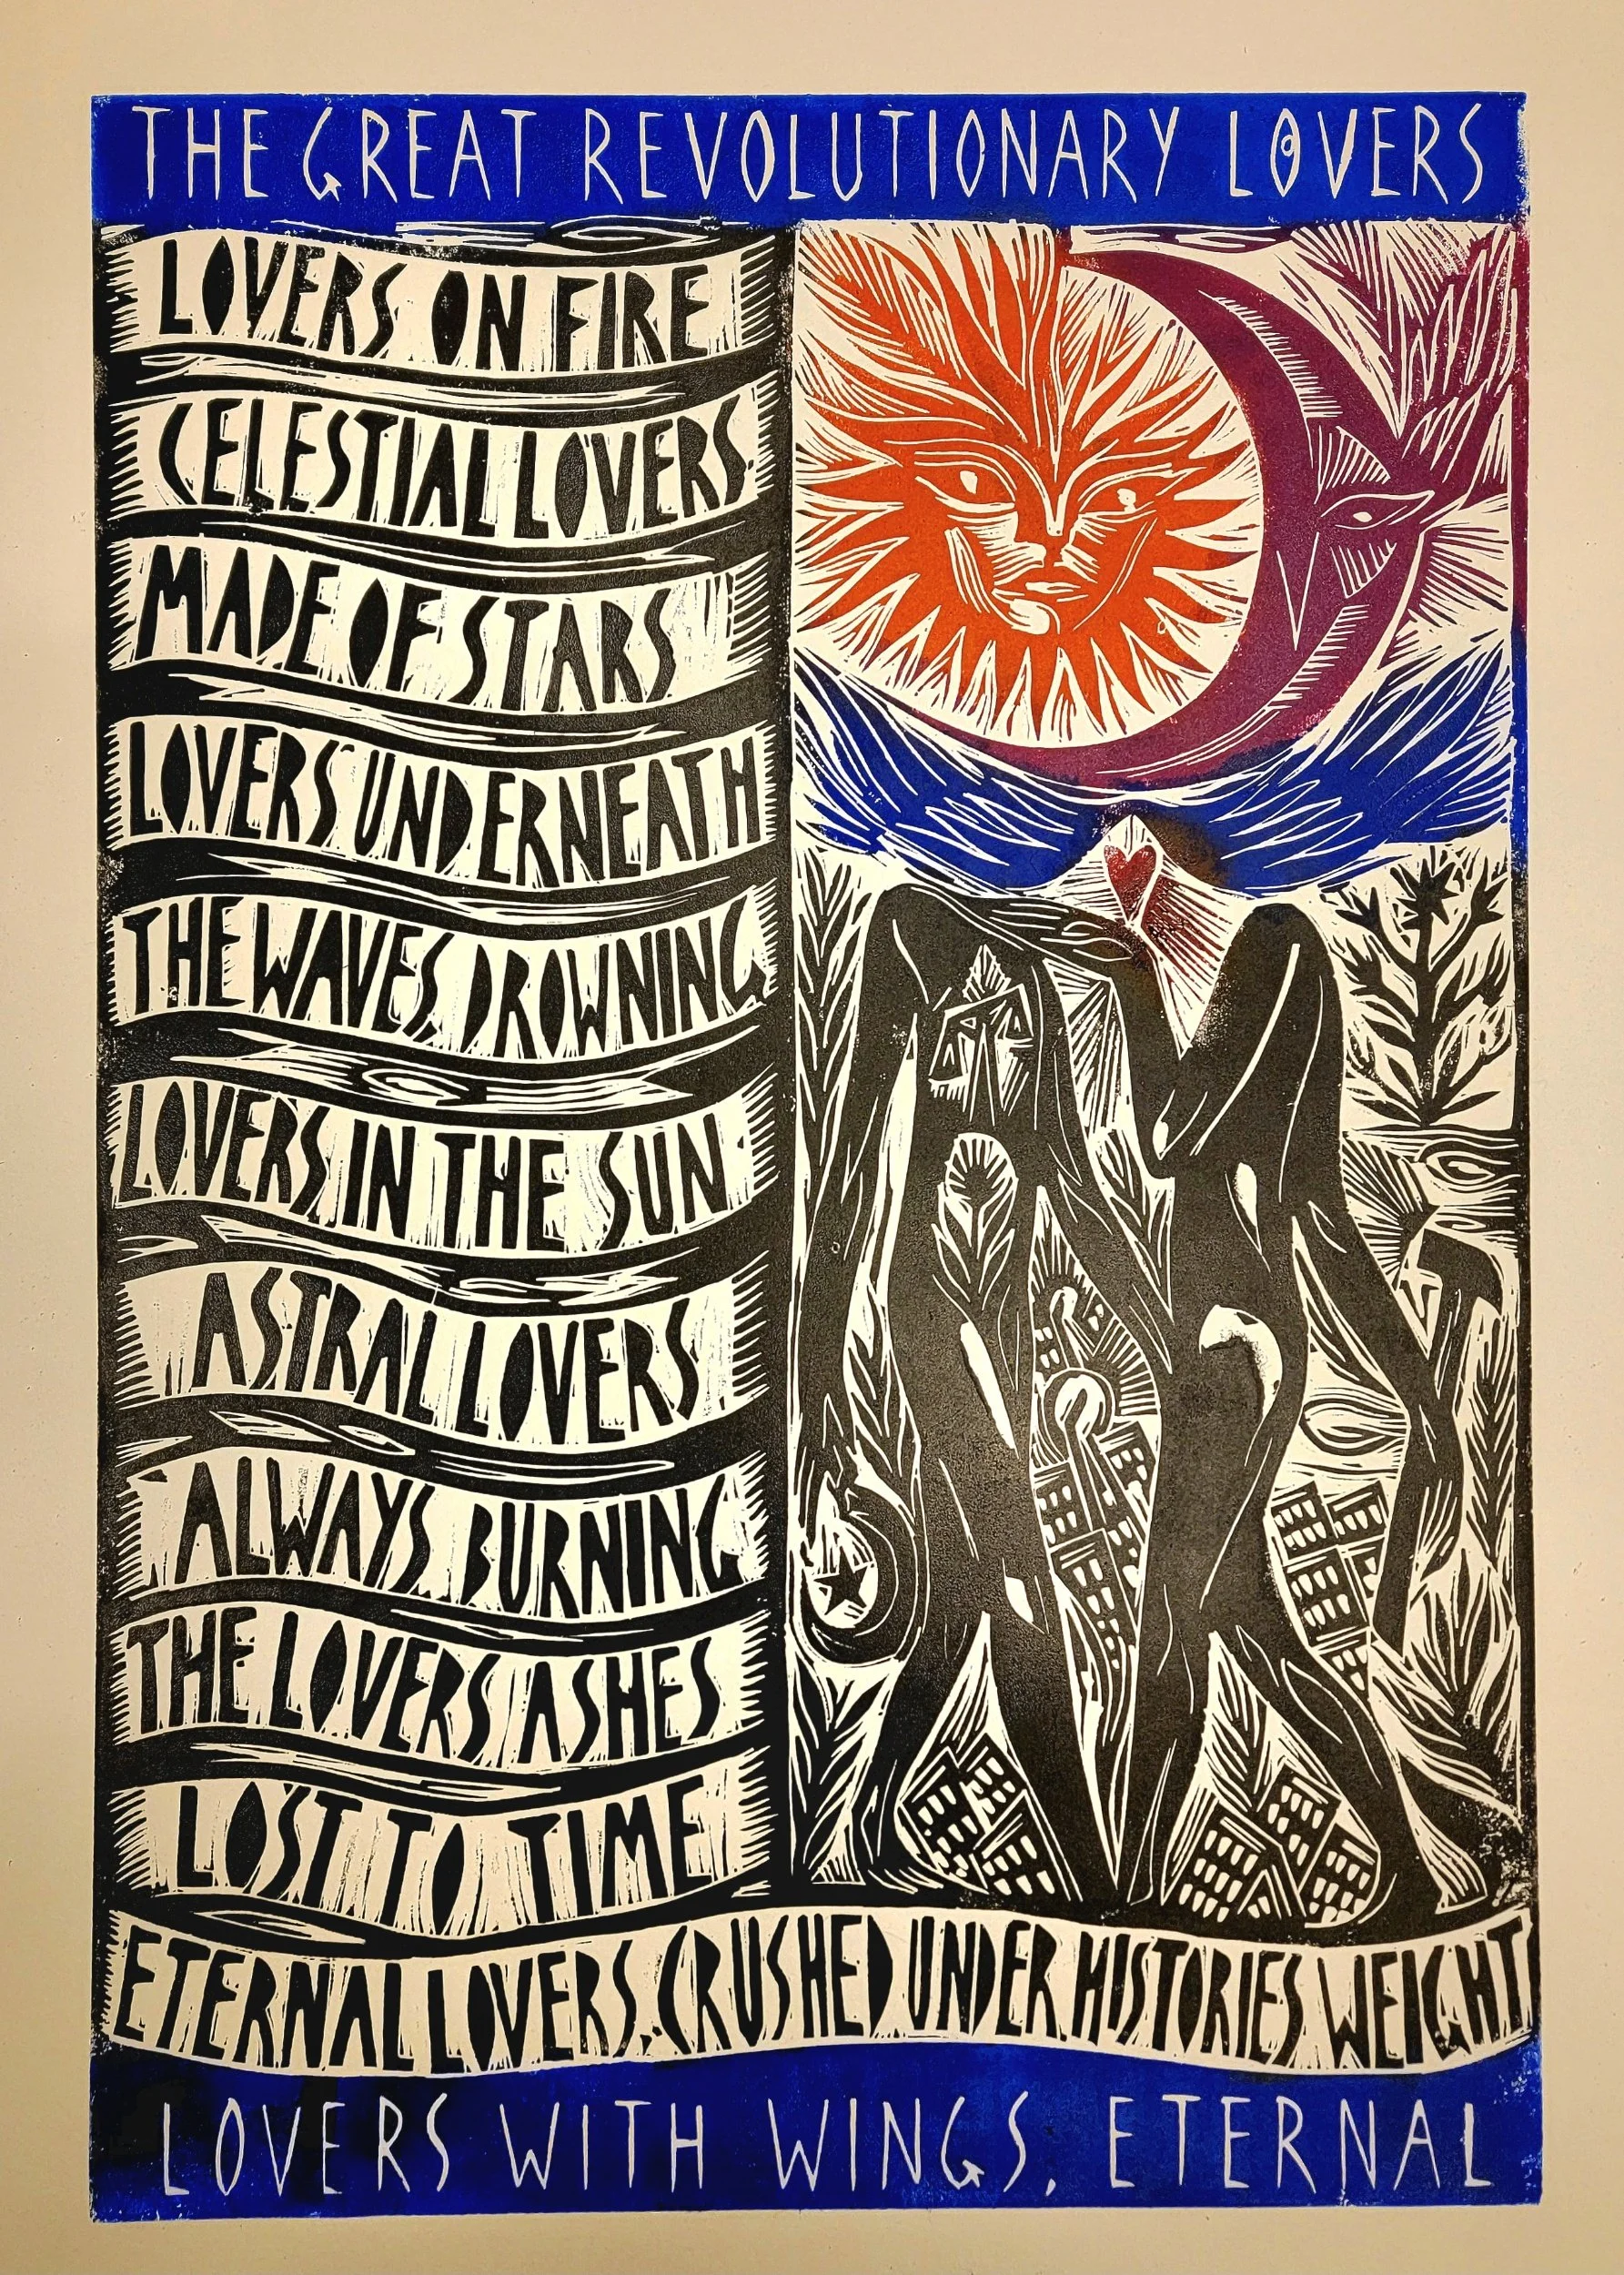 THE GREAT REVOLUTIONARY LOVERS
LOVERS ON FIRE
CELESTIAL LOVERS
MADE OF STARS
LOVERS UNDERNEATH
THE WAVES DROWNING
LOVERS IN THE SUN
ASTRAL LOVERS
ALWAYS BURNING
THE LOVERS ASHES
LOST TO TIME
ETERNAL LOVERS. CRUSHED UNDER HISTORIES WEIGHT
LOVERS WITH WINGS. ETERNAL